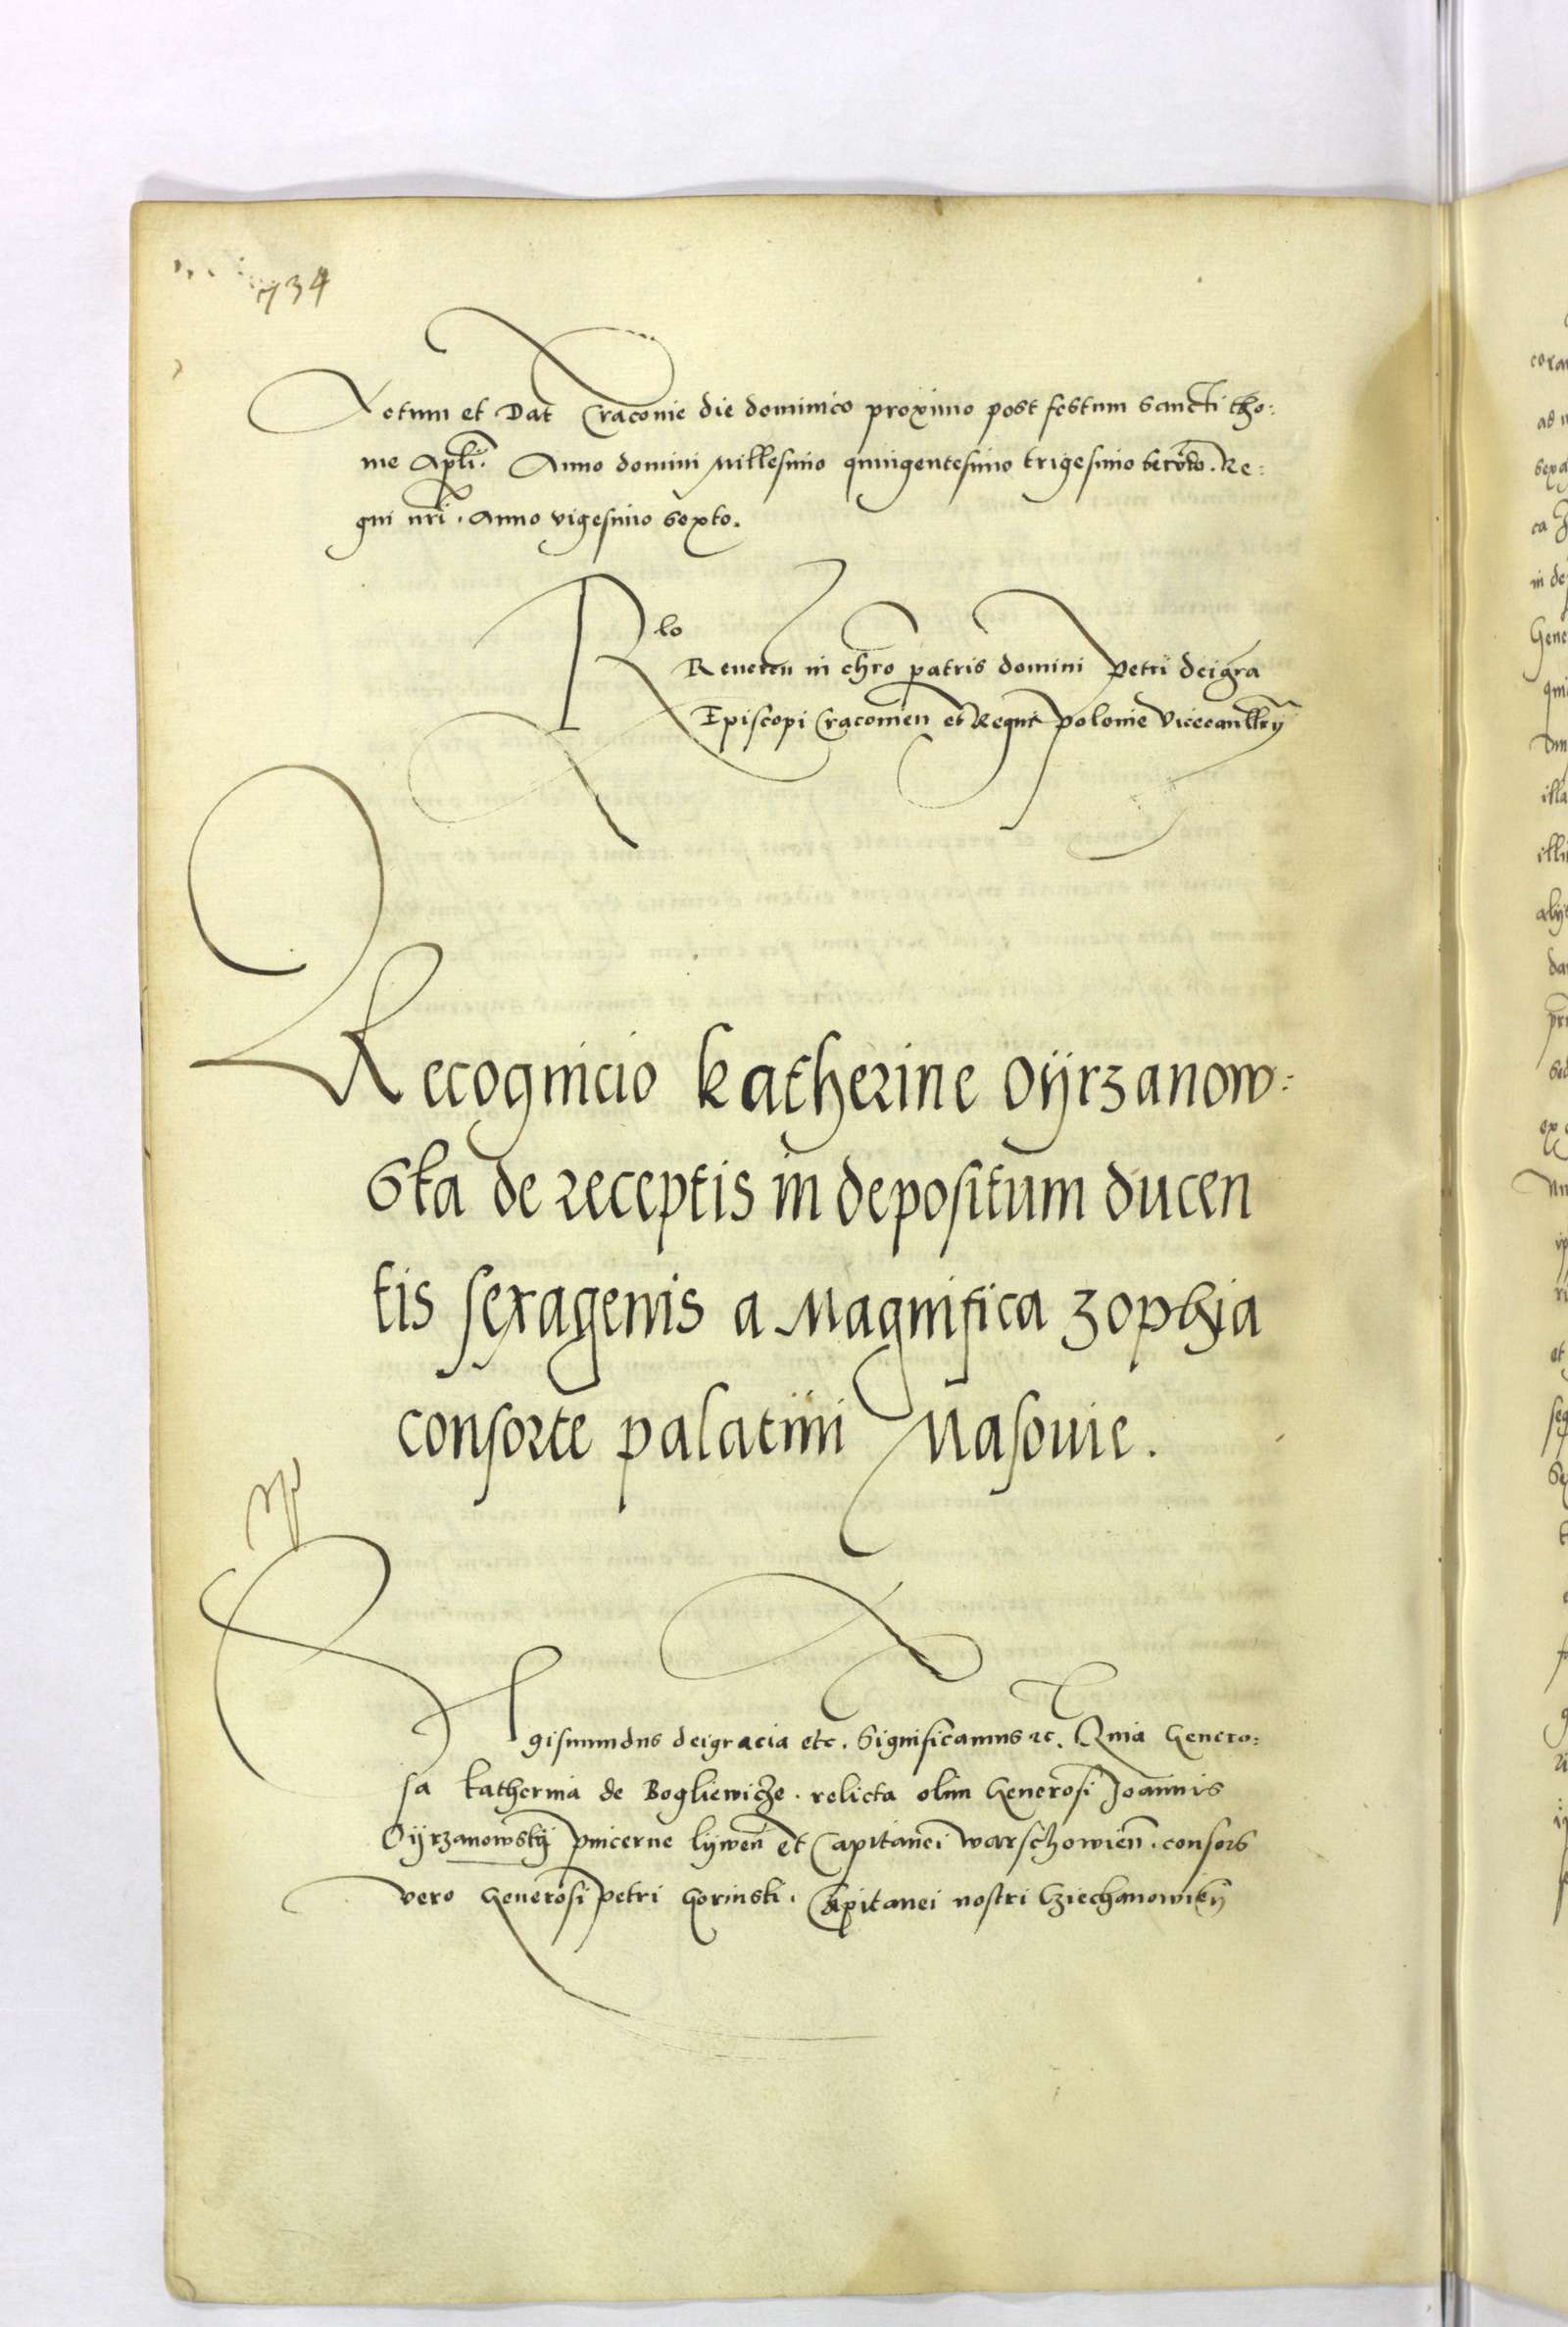 734
Actum et Dat Cracovie die dominico proximo post festum sancti tho:
me Apłi. Anno domini Millesimo quingentesimo trigesimo tercio. Re:
gni nri. Anno vigesimo sexto.
Rlo
Reveren in chro patris domini Petri dei gra
Episcopi Cracovien et Regni Polonie Vicecancllrÿ
Recognicio Katherine Oÿrzanow:
ska de receptis in depositum ducen
tis sexagenis a Magnifica Zophia
consorte palatini Masovie.
Sigismundus dei gracia etc. Significamus etc. Quia Genero:
sa Katherina de Bogliewicze. relicta olim Generosi Joannis
Oÿrzanowskÿ pincerne lÿwen et Capitanei warschowien. consors
vero Generosi Petri Gorinski. Capitanei nostri Cziechanowien